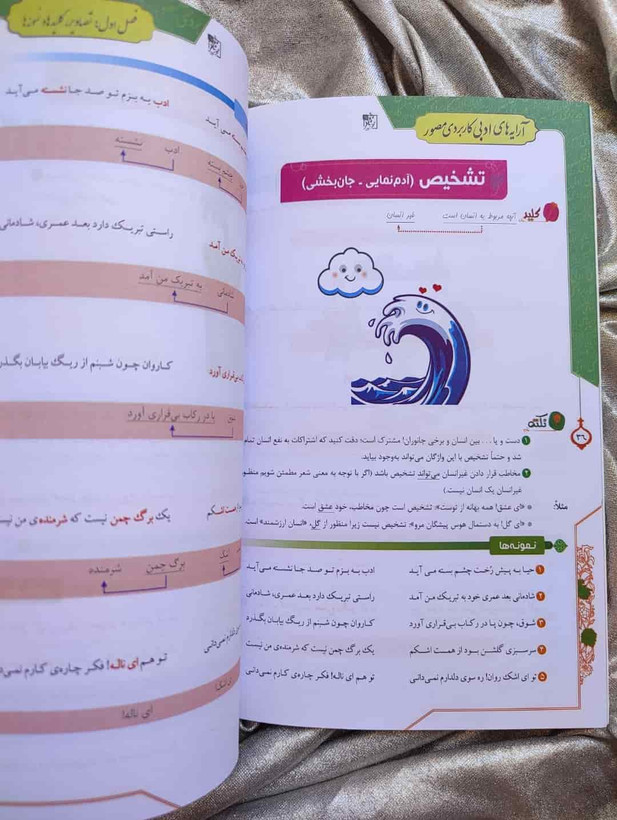 آرایه‌های ادبی کاربردی مصور
تشخیص (آدم‌نمایی - جان‌بخشی)
کلید
آنچه مربوط به انسان است غیر انسان
نکته
۱ دست و پا . . . بین انسان و برخی جانوران! مشترک است؛ دقت کنید که اشتراکات به نفع انسان تمام
شد و حتماً تشخیص با این واژگان می‌تواند به‌وجود بیاید.
۲ مخاطب قرار دادن غیرانسان می‌تواند تشخیص باشد (اگر با توجه به معنی شعر مطمئن شویم منظور
غیرانسان یک انسان نیست.)
مثلاً:
«ای عشق! همه بهانه از توست»: تشخیص است چون مخاطب، خود عشق است.
«ای گل! به دستمال هوس پیشگان مرو»: تشخیص نیست زیرا منظور از گل، «انسان ارزشمند» است.
۳۶
نمونه‌ها
۱ حیا به پیش رُخت چشم بسته می آید ادب به بزم تو صد جا نشسته می‌آید
۲ شادمانی بعد عمری خود به تبریک من آمد راستی تبریک دارد بعد عمری، شادمانی
۳ شوق، چون پا در رکاب بی‌قراری آورد کاروان چون شبنم از ریگ بیابان بگذرد
۴ سرسبزی گلشن بود از همت اشکم یک برگ چمن نیست که شرمنده‌ی من نیست
۵ تو ای اشک روان! ره سوی دلدارم نمی‌دانی تو هم ای ناله! فکر چاره‌ی کارم نمی‌دانی
فصل اول: تصاویر، کلیدها و نمونه‌ها
ادب به بزم تو صد جا نشسته می‌آید
ادب نشسته
چشم بسته
راستی تبریک دارد بعد عمری، شادمانی
تبریک من آمد
شادمانی به تبریک من آمد
کاروان چون شبنم از ریگ بیابان بگذر
بی‌قراری آورد
پا در رکاب بی‌قراری آورد
یک برگ چمن نیست که شرمنده‌ی من نیس
همت اشکم
برگ چمن شرمنده
تو هم ای ناله! فکر چاره‌ی کارم نمی‌دانی
ای ناله!